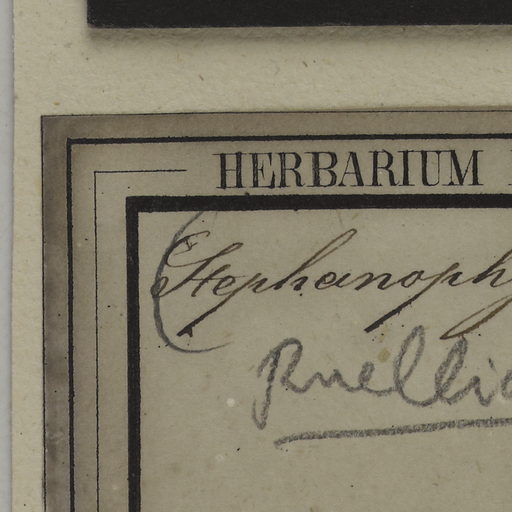 HERBARIUM
(Stephanophy
Ruellia